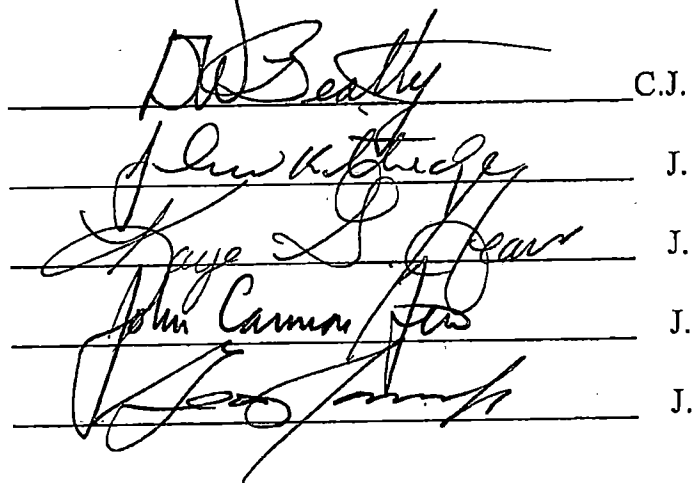 DW Beatty C.J.
John Kittredge J.
Kaye G Hearn J.
John Cannon Few J.
J.